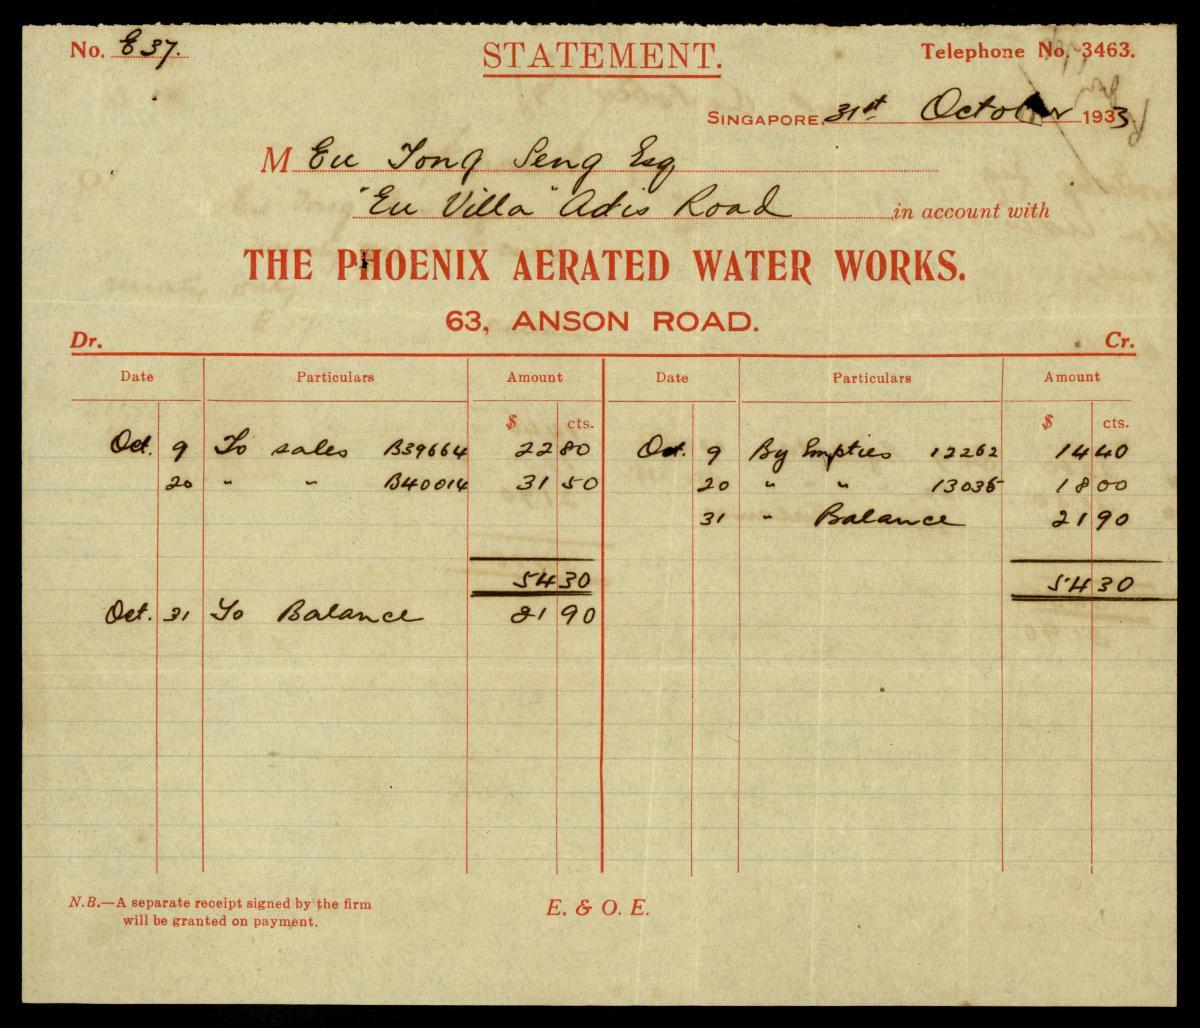 No. E 37.
STATEMENT.
Telephone No. 3463.
SINGAPORE, 31st October 1933
M Eu Tong Seng Esq
"Eu Villa" Adis Road in account with
THE PHOENIX AERATED WATER WORKS.
63, ANSON ROAD.
Dr. Cr.
Date Particulars Amount Date Particulars Amount
$ cts. $ cts.
Oct. 9 To sales B39664 22 80 Oct. 9 By Empties 12262 14 40
20 " " B40014 31 50 20 " " 13035 18 00
31 " Balance 21 90
54 30 54 30
Oct. 31 To Balance 21 90
N.B.—A separate receipt signed by the firm
will be granted on payment.
E. & O. E.